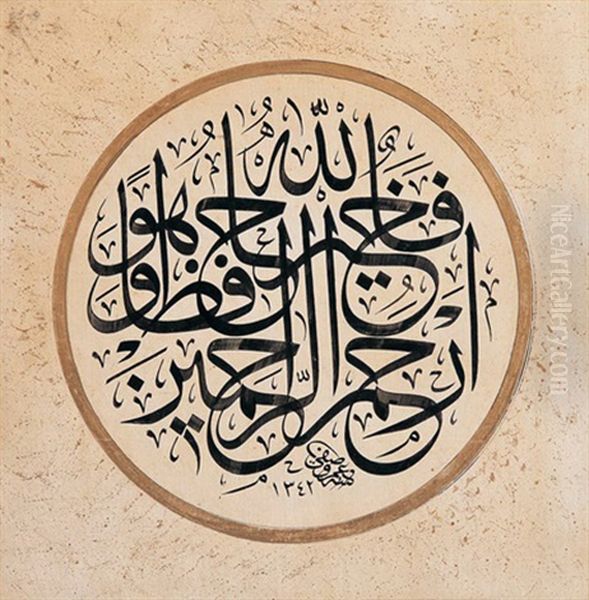 فالله خير حافظا وهو
ارحم الراحمين
عمر وصفى
١٣٤٢
NiceArtGallery.com